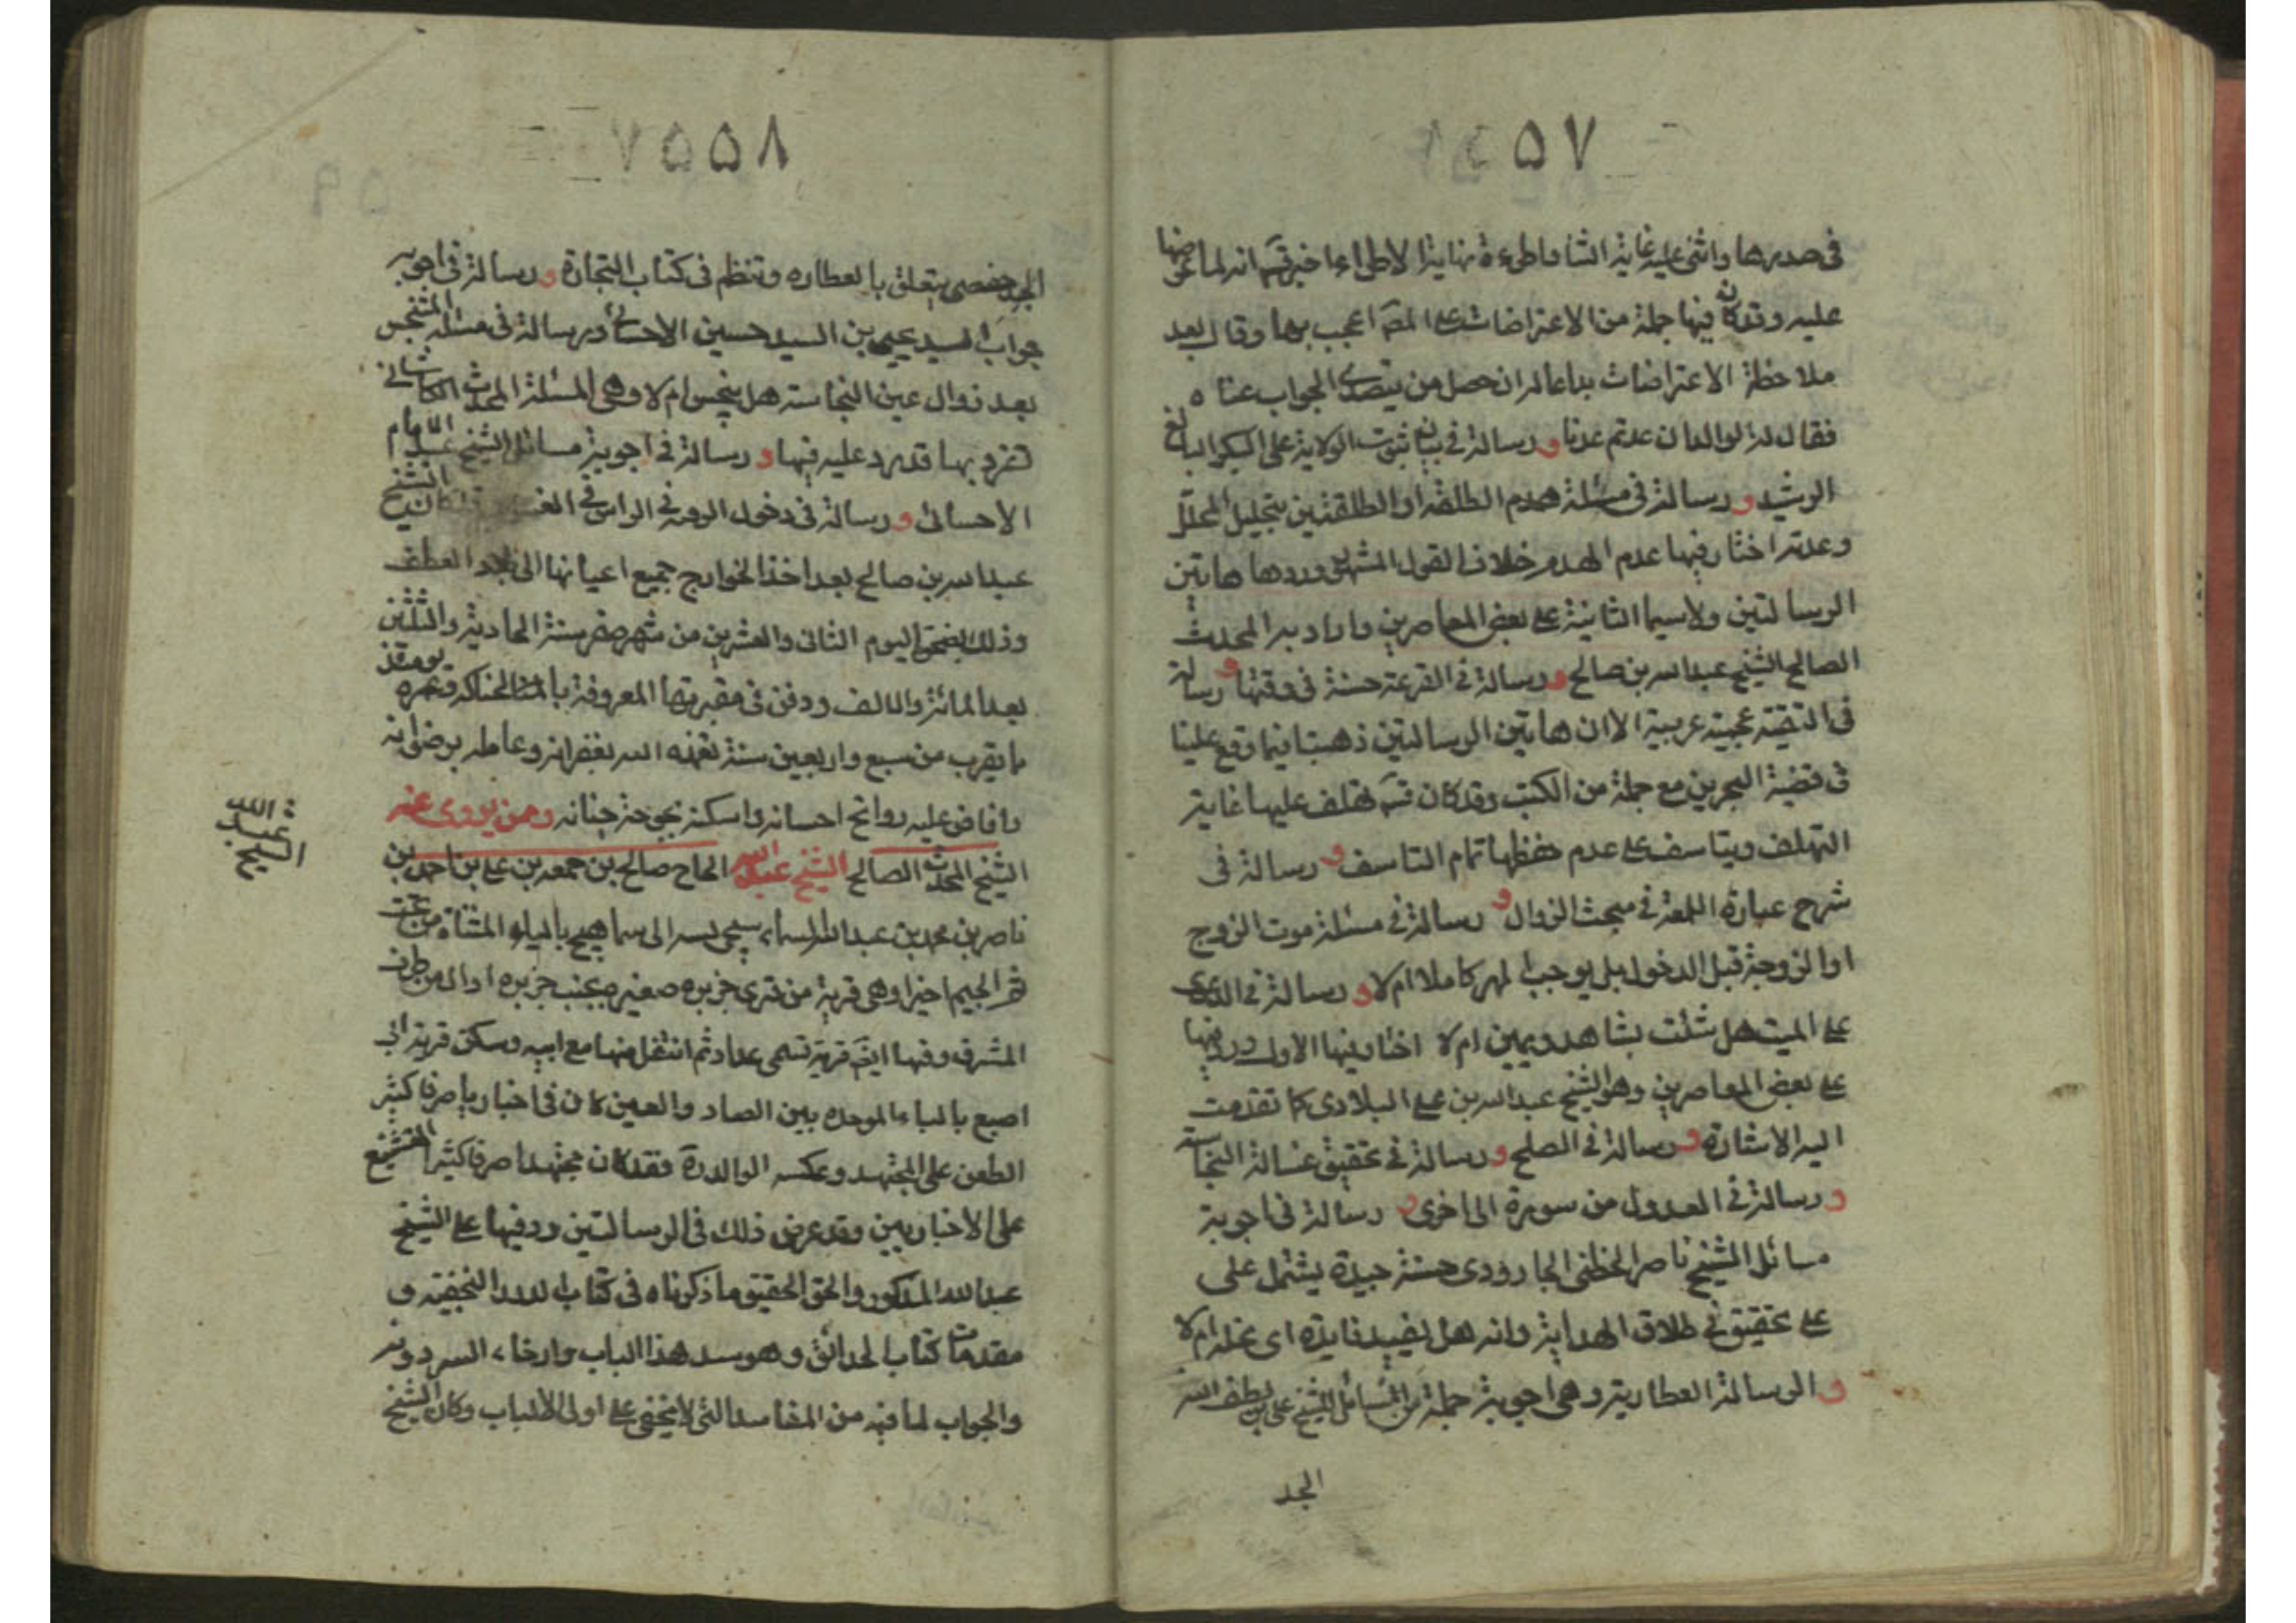 ٥٧
في صدرها واثنى عليه غاية الثنا واطرءه نهاية الاطراء اخبرني قده انه لما عرضها
عليه وقد كان فيها جملة من الاعتراضات على المص اعجب بها وقال بعد
ملاحظة الاعتراضات بداعا لمران حصل من يتصدى الجواب عنا ه
فقال له الوالد ان عدتم عدنا و رسالة في بيان ثبوت الولاية على البكر البالغ
الرشيد و رسالة في مسئلة هدم الطلقة او الطلقتين بتحليل المحلل
وعدته اختار فيها عدم الهدم خلاف القول المشهور وردوها هاتين
الرسالتين ولا سيما الثانية على بعض المعاصرين واراد به المحدث
الصالح الشيخ عبدالله بن صالح و رسالة في القرعة حسنة في وقتها و رسالة
في التقية عجيبة غريبة الا ان هاتين الرسالتين ذهبتا فيما وقع علينا
في قضية البحرين مع جملة من الكتب وقد كان قده يتلهف عليها غاية
التهلف ويتاسف على عدم حفظها تمام التاسف و رسالة في
شرح عبارة اللمعة في مبحث الزوال و رسالة في مسئلة موت الزوج
او الزوجة قبل الدخول بل يوجب المهر كاملا ام لا و رسالة في الدعوى
على الميت هل تثبت بشاهد ويمين ام لا اختار فيها الاول ورد فيها
على بعض المعاصرين وهو الشيخ عبدالله بن علي البلادي كما تقدمت
اليه الاشارة و رسالة في الصلح و رسالة في تحقيق غسالة النجاسة
و رسالة في العدول من سورة الى اخرى و رسالة في اجوبة
مسائل الشيخ ناصر الخطي الجارودي حسنة جيدة يشتمل على
على تحقيق في طلاق الهداية وانه هل يفيد فايدة اى ام لا
و الرسالة العطارية وهي اجوبة جملة من المسائل للشيخ علي بن لطف الله
الجد
٥٨
الجد حفصى يتعلق بالعطاره وتنظم في كتاب التجارة و رسالة في اجوبه
جواب السيد يحيى بن السيد حسين الاحسائي ورسالة في مسئلة المتنجس
بعد زوال عين النجاسة هل ينجس ام لا وهى المسئلة المحدث الكاشاني
تفرد بها قد رد عليه فيها و رسالة في اجوبة مسائل الشيخ عبد الامام
الاحسائي و رسالة في دخول الرقبة في الراس في الغسل الشيخ
عبدالله بن صالح بعد اخذ الخوارج جميع اعيانها الى بلاد القطيف
وذلك بضحى اليوم الثاني والعشرين من شهر صفر سنة الحادية والثلثين
بعد المائة والالف ودفن في مقبرتها المعروفة بالحناكه وعمره يومئذ
ما يقرب من سبع واربعين سنة تغمده الله بغفرانه وعامله برضوانه
وافاض عليه روائح احسانه واسكنه بحوحة جنانه وممن يروى عنه
الشيخ المحدث الصالح الشيخ عبدالله الحاج صالح بن جمعة بن علي بن احمد بن
ناصر بن محمد بن عبدالله السماهيجى نسبه الى سماهيج بالياء المثناة من تحت
ثم الجيم اخيرا وهى قرية من قرى جزيره صغيره بجنب جزيره اوال من طرف
المشرق وفيها ايضا قرية تسمى عداد ثم انتقل منها مع ابيه وسكن قرية ابي
اصبع بالباء الموحده بين الصاد والعين كان في اخباريا صرفا كثير
الطعن على المجتهد وعكسه الوالد ره فقد كان مجتهدا صرفا كثير التشنيع
على الاخباريين وقد عرض ذلك في الرسالتين ورد فيها على الشيخ
عبدالله المذكور والحق الحقيق ما ذكرناه في كتاب الدرر النجفية و
مقدمات كتاب الحدائق وهو سد هذا الباب وارخاء السر دونه
والجواب لما فيه من المفاسد التى لا يخفى على اولى الالباب وكان الشيخ
الشيخ عبد الله